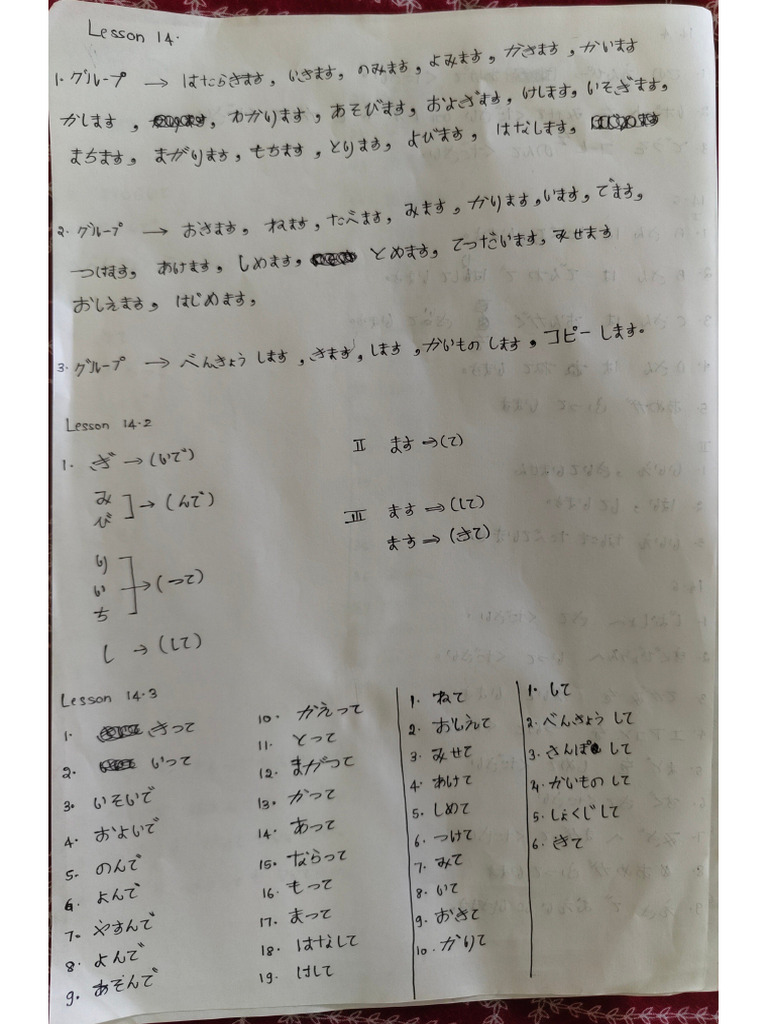 Lesson 14.
1. グループ → はたらきます, いきます, のみます, よみます, かきます, かいます
かします, わかります, あそびます, およぎます, けします, いそぎます,
まちます, まがります, もちます, とります, よびます, はなします,
2. グループ → おきます, ねます, たべます, みます, かります, います, でます,
つけます, あけます, しめます, とめます, てつだいます, みせます
おしえます, はじめます,
3. グループ → べんきょう します, きます, します, かいもの します, コピー します。
Lesson 14.2
1. ぎ → (いで)
み
び ] → (んで)
り
い → (って)
ち
し → (して)
II ます → (て)
III ます ⇒ (して)
ます ⇒ (きて)
Lesson 14.3
1. きって
2. いって
3. いそいで
4. およいで
5. のんで
6. よんで
7. やすんで
8. よんで
9. あそんで
10. かえって
11. とって
12. まがって
13. かって
14. あって
15. ならって
16. もって
17. まって
18. はなして
19. けして
1. ねて
2. おしえて
3. みせて
4. あけて
5. しめて
6. つけて
7. みて
8. いて
9. おきて
10. かりて
1. して
2. べんきょう して
3. さんぽ して
4. かいもの して
5. しょくじ して
6. きて